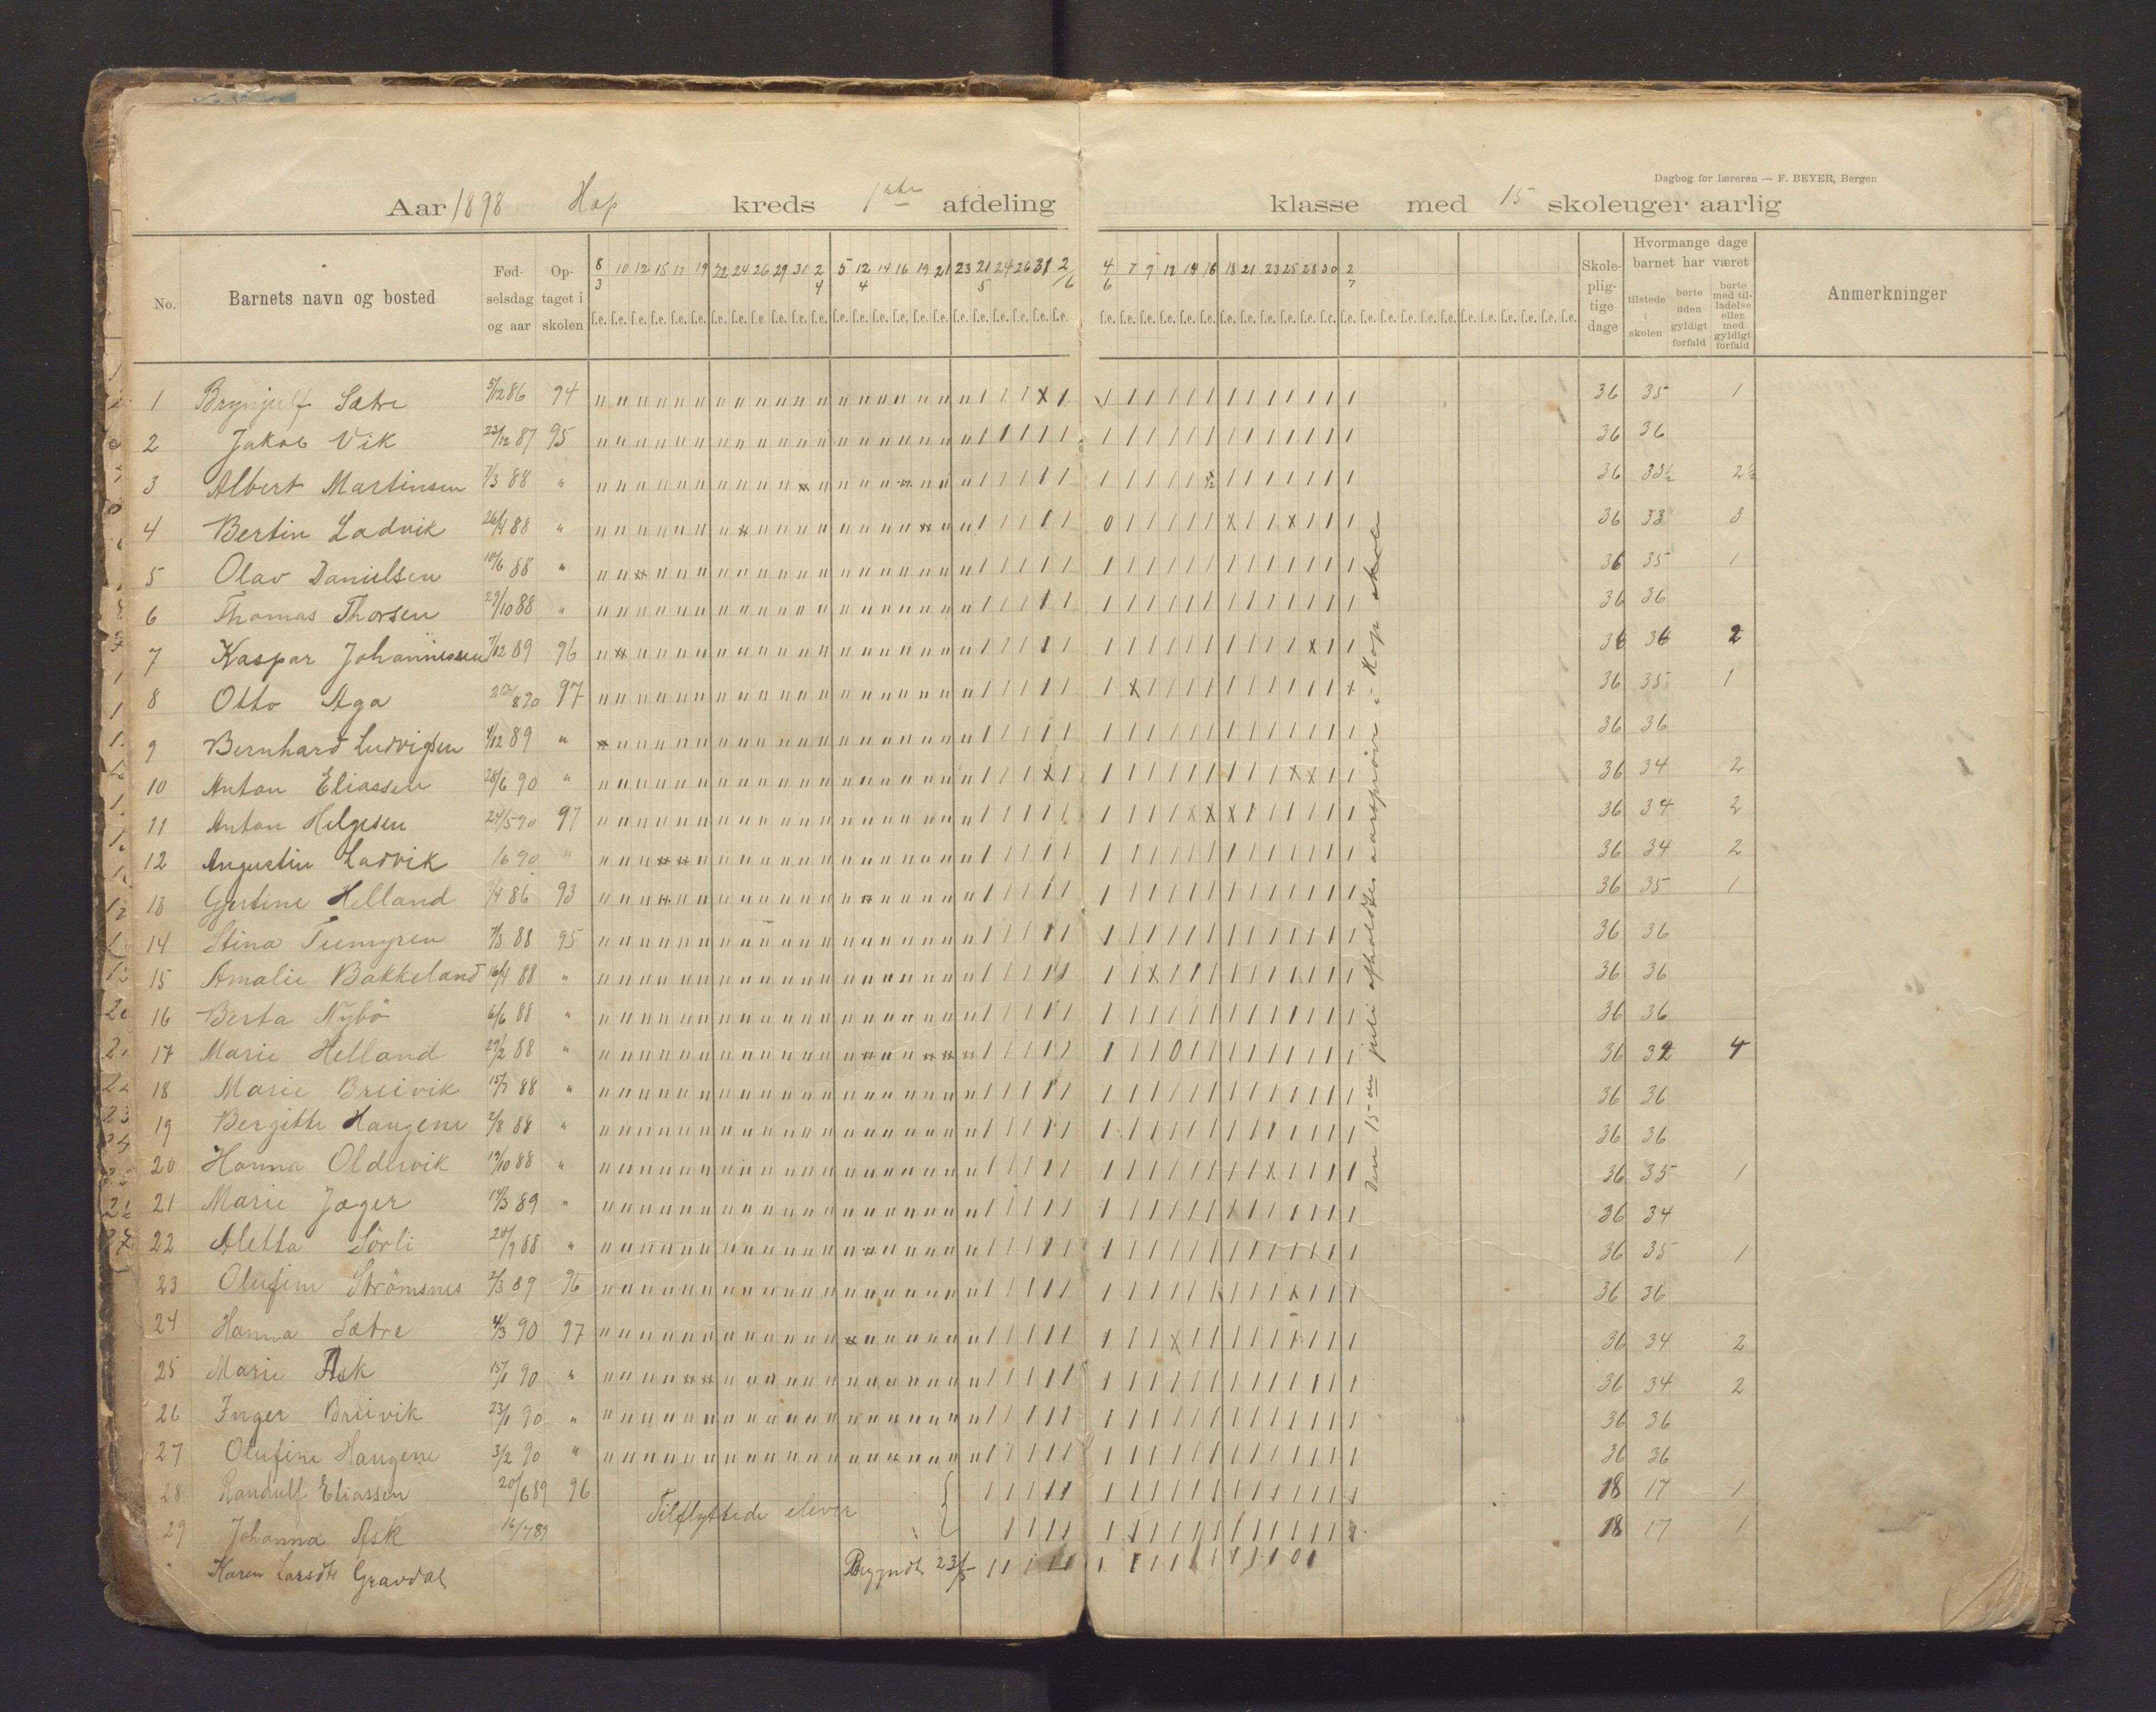 Dagbog for læreren — F. BEYER, Bergen
Aar 1898 Hop kreds 1ste afdeling klasse med 15 skoleuger aarlig
No. Barnets navn og bosted Fødselsdag og aar Optaget i skolen 8/3 10 12 15 17 19 22 24 26 29 31 2/4 5 12/4 14 16 19 21 23 21/5 24 26 31 2/6 4/6 7 9 12 14 16 18 21 23 25 28 30 2/7 Skolepligtige dage Hvormange dage barnet har været tilstede i skolen borte uden gyldigt forfald borte med tilladelse eller med gyldigt forfald Anmerkninger
1 Brynjulf Sætre 5/12 86 94 36 35 1
2 Jakob Vik 23/12 87 95 36 36
3 Albert Martinsen 7/3 88 " 36 33½ 2½
4 Bertin Ladvik 26/4 88 " 36 33 3
5 Olav Danielsen 10/6 88 " 36 35 1
6 Thomas Thorsen 29/10 88 " 36 36
7 Kaspar Johannessen 7/12 89 96 36 36 2
8 Otto Aga 97 36 35 1
9 Bernhard Ludvigsen 4/12 89 " 36 36
10 Anton Eliassen 28/6 90 " 36 34 2
11 Anton Helgesen 24/5 90 97 36 34 2
12 Augustin Ladvik 90 " 36 34 2
13 Gjertine Helland 7/4 86 93 36 35 1
14 Stina 7/3 88 95 36 36
15 Amalie Bakkeland 16/4 88 " 36 36
16 Berta Nybö 6/6 88 " 36 36
17 Marie Helland 29/2 88 " 36 32 4
18 Marie Breivik 15/7 88 " 36 36
19 Bergitte Haugene 2/8 88 " 36 36
20 Hanna Oldervik 19/10 88 " 36 35 1
21 Marie Jæger 14/3 89 " 36 34
22 Aletta Sörli 20/9 88 " 36 35 1
23 Olufine Strömsnes 2/3 89 96 36 36
24 Hanna Sætre 4/3 90 97 36 34 2
25 Marie Ask 15/1 90 " 36 34 2
26 Inger Breivik 23/1 90 " 36 36
27 Olufine Haugene 3/2 90 " 36 36
28 Randulf Eliassen 20/6 89 96 Tilflyttede elever 18 17 1
29 Johanna Ask 16/7 89 18 17 1
Karen Larsdtr Gravdal Begyndt 23/5
Den 15de juli afholdtes aarsprøve i Hop skole